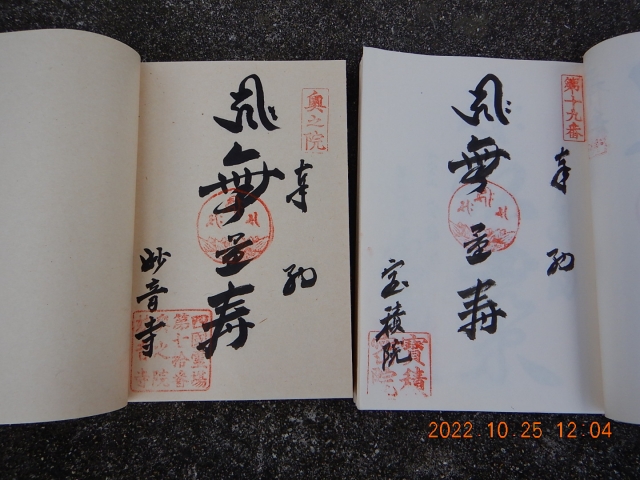 奥之院
奉納
無量寿
妙音寺
四國霊場
第七拾番
院
第十九番
奉納
無量寿
宝積院
寳積
院
2022 10 25 12:04